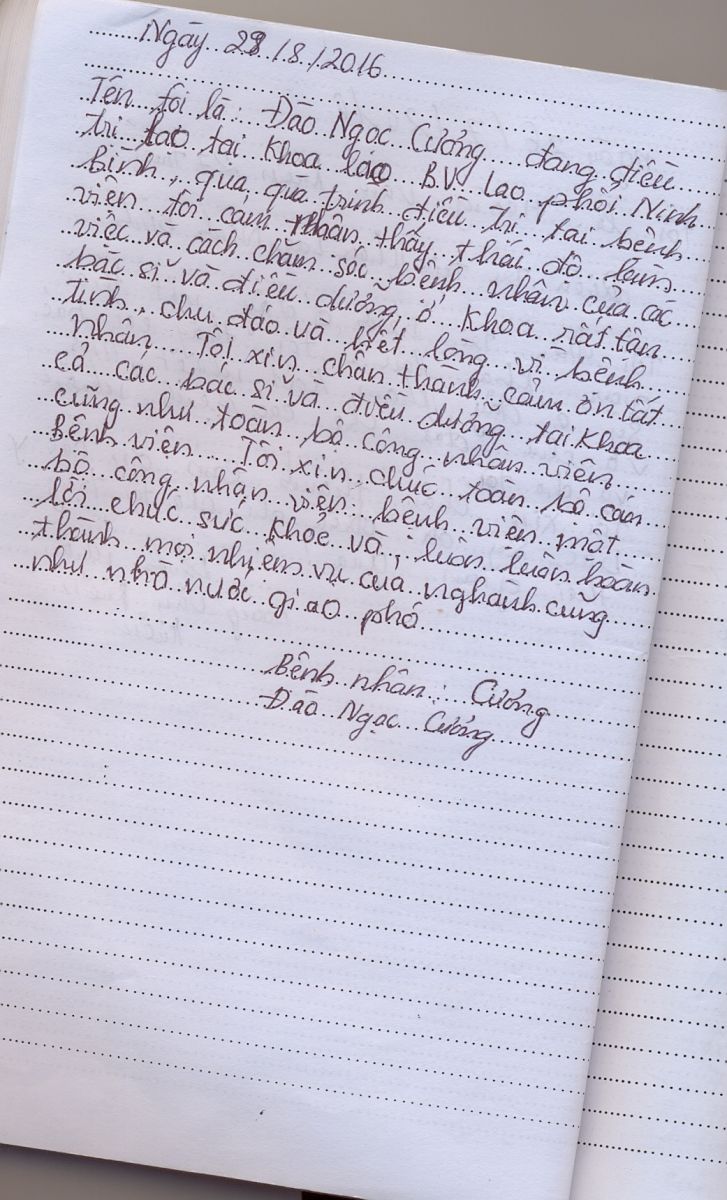 Ngày 28/8/2016
Tên tôi là: Đào Ngọc Cường đang điều
trị lao tại khoa lao B.V Lao phổi Ninh
Bình, qua quá trình điều trị tại bệnh
viện tôi cảm nhân thấy thái độ làm
việc và cách chăm sóc bệnh nhân của các
bác sĩ và điều dưỡng ở khoa rất tận
tình, chu đáo và hết lòng vì bệnh
nhân. Tôi xin chân thành cảm ơn tất
cả các bác sĩ và điều dưỡng tại khoa
cũng như toàn bộ công nhân viên
Bệnh viện. Tôi xin chúc toàn bộ cán
bộ công nhân viên bệnh viện một
lời chúc sức khỏe và, luôn luôn hoàn
thành mọi nhiệm vụ của nghành cũng
như nhà nước giao phó
Bệnh nhân: Cường
Đào Ngọc Cường